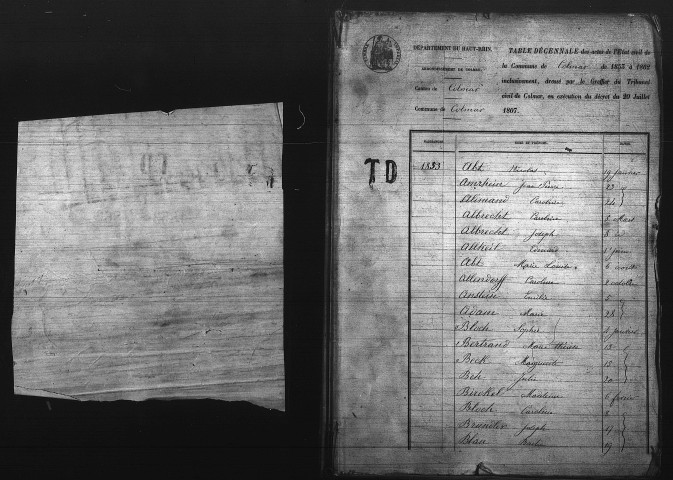 DÉPARTEMENT DU HAUT-RHIN.
ARRONDISSEMENT DE COLMAR.
Canton de Colmar
Commune de Colmar
TABLE DÉCENNALE des actes de l'Etat civil de
la Commune de Colmar de 1853 à 1862
inclusivement, dressé par le Greffier du Tribunal
civil de Colmar, en exécution du décret du 20 Juillet
1807.
NOMS ET PRÉNOMS. DATES.
TD
1853 Abt Nicolas 19 janvier
Amrhein Jean Pierre 23
Alimand Caroline 24
Albrecht 5 Mars
Albrecht Joseph 5
Altheit Edouard juin
Abt Marie Louise 6
Allendorff Caroline 2 octobre
Anstein Emilie 5
Adam Marie 28
Bloch Sophie 2 janvier
Bertrand Marie Thérèse 13
Beck Marguerite 15
Beh Julie 20
Birckel Madeleine 6
Bloch Caroline 8
Brunder Joseph 17
Blan 19